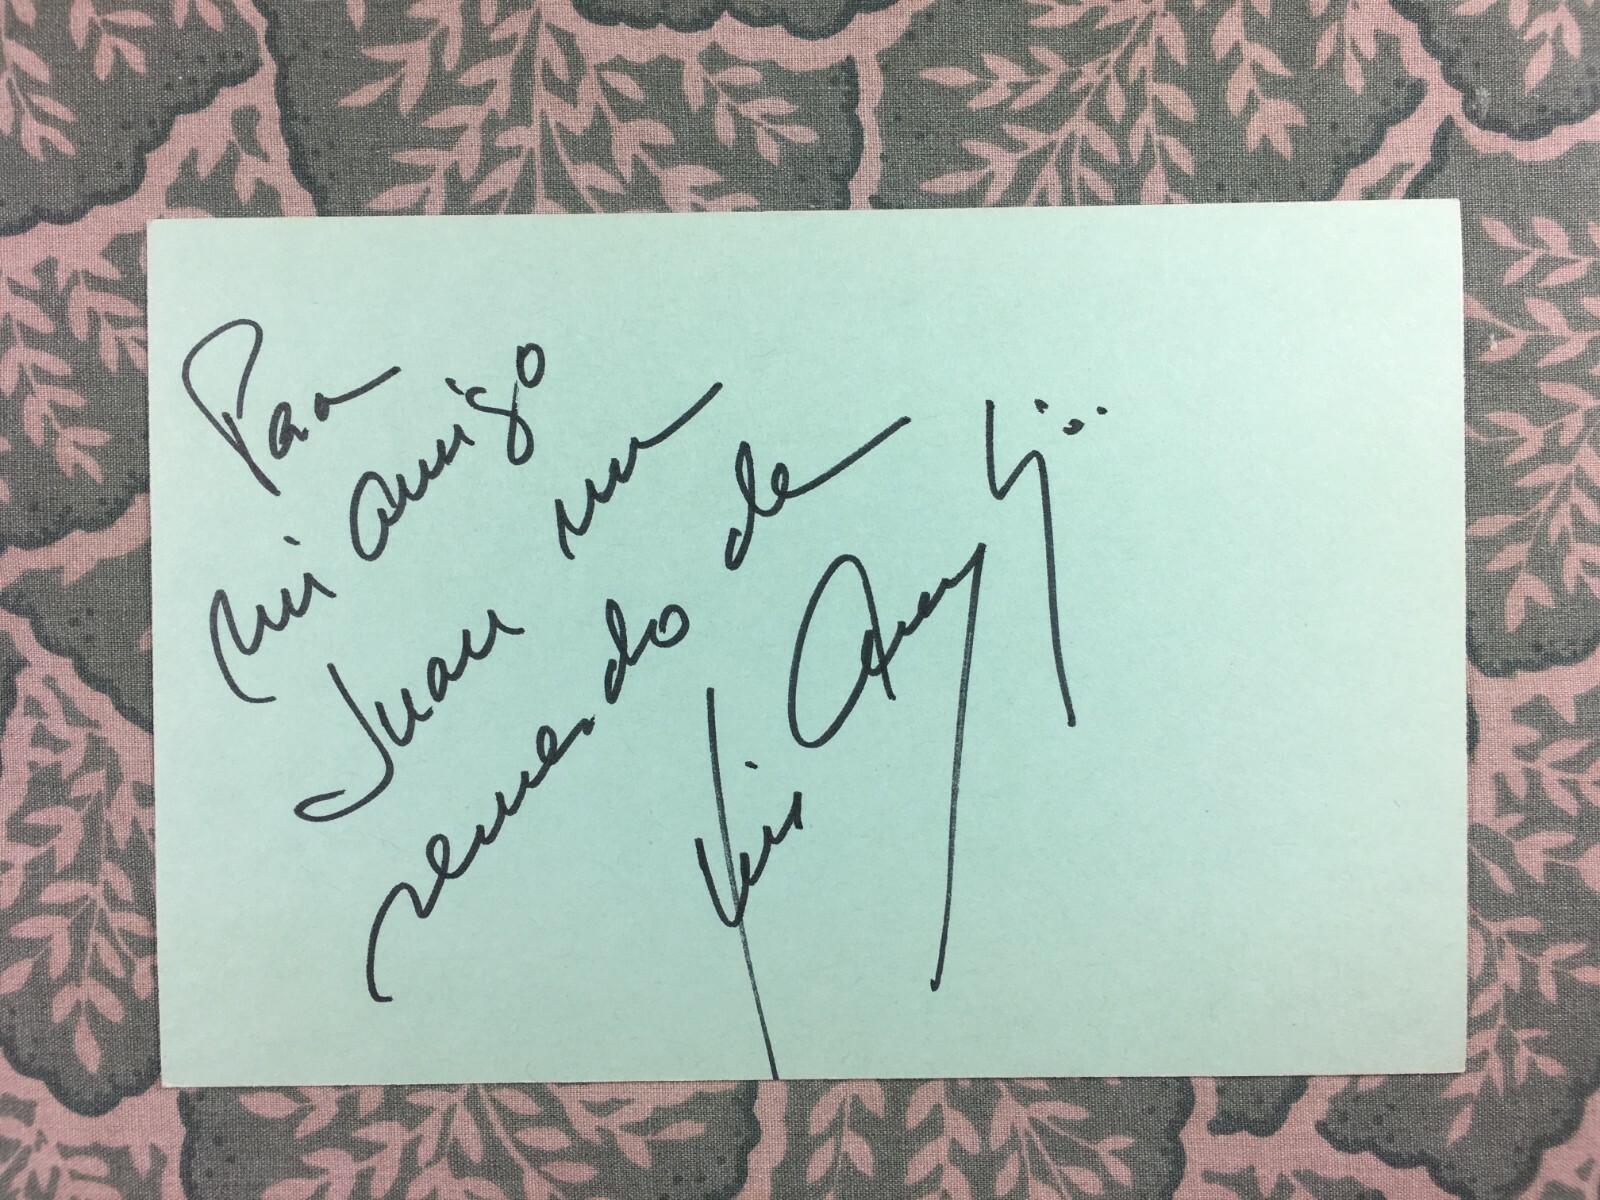 Para
mi amigo
Juan un
recuerdo de
Luis